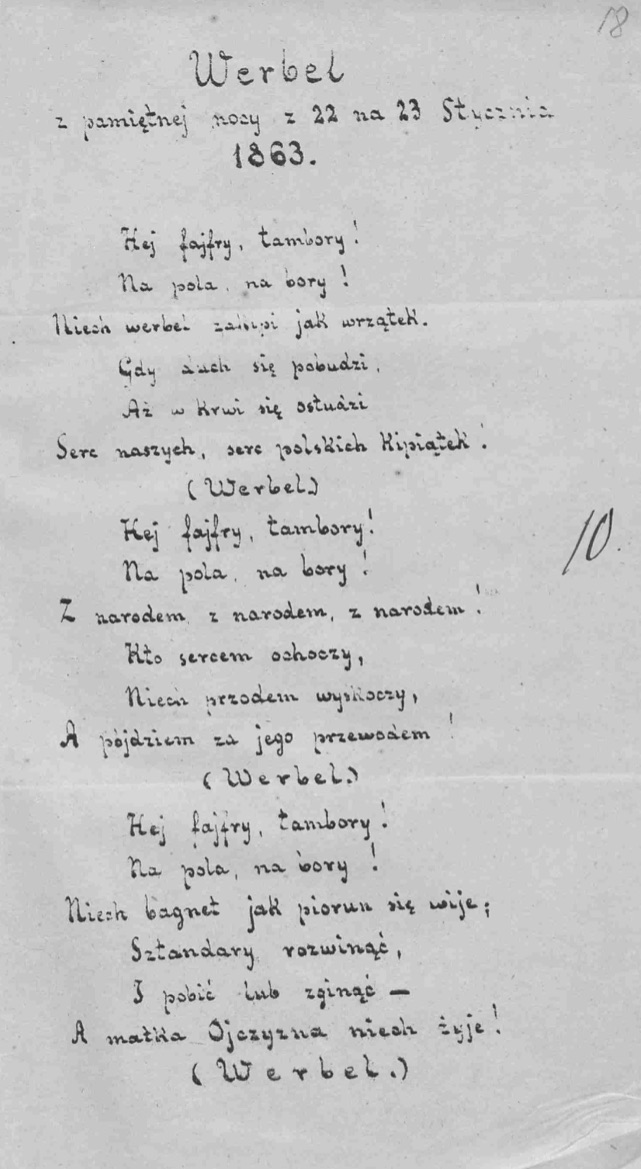 18
Werbel
z pamiętnej nocy z 22 na 23 Stycznia
1863.
Hej fajfry, tambory!
Na pola, na bory!
Niech werbel zakipi jak wrzątek.
Gdy duch się pobudzi,
Aż w krwi się ostudzi
Serc naszych, serc polskich kipiątek!
(Werbel)
Hej fajfry, tambory!
Na pola, na bory!
10.
Z narodem, z narodem, z narodem!
Kto sercem ochoczy,
Niech przodem wyskoczy,
A pójdziem za jego przewodem!
(Werbel.)
Hej fajfry, tambory!
Na pola, na bory!
Niech bagnet jak piorun się wije;
Sztandary rozwinąć,
I pobić lub zginąć —
A matka Ojczyzna niech żyje!
(Werbel.)